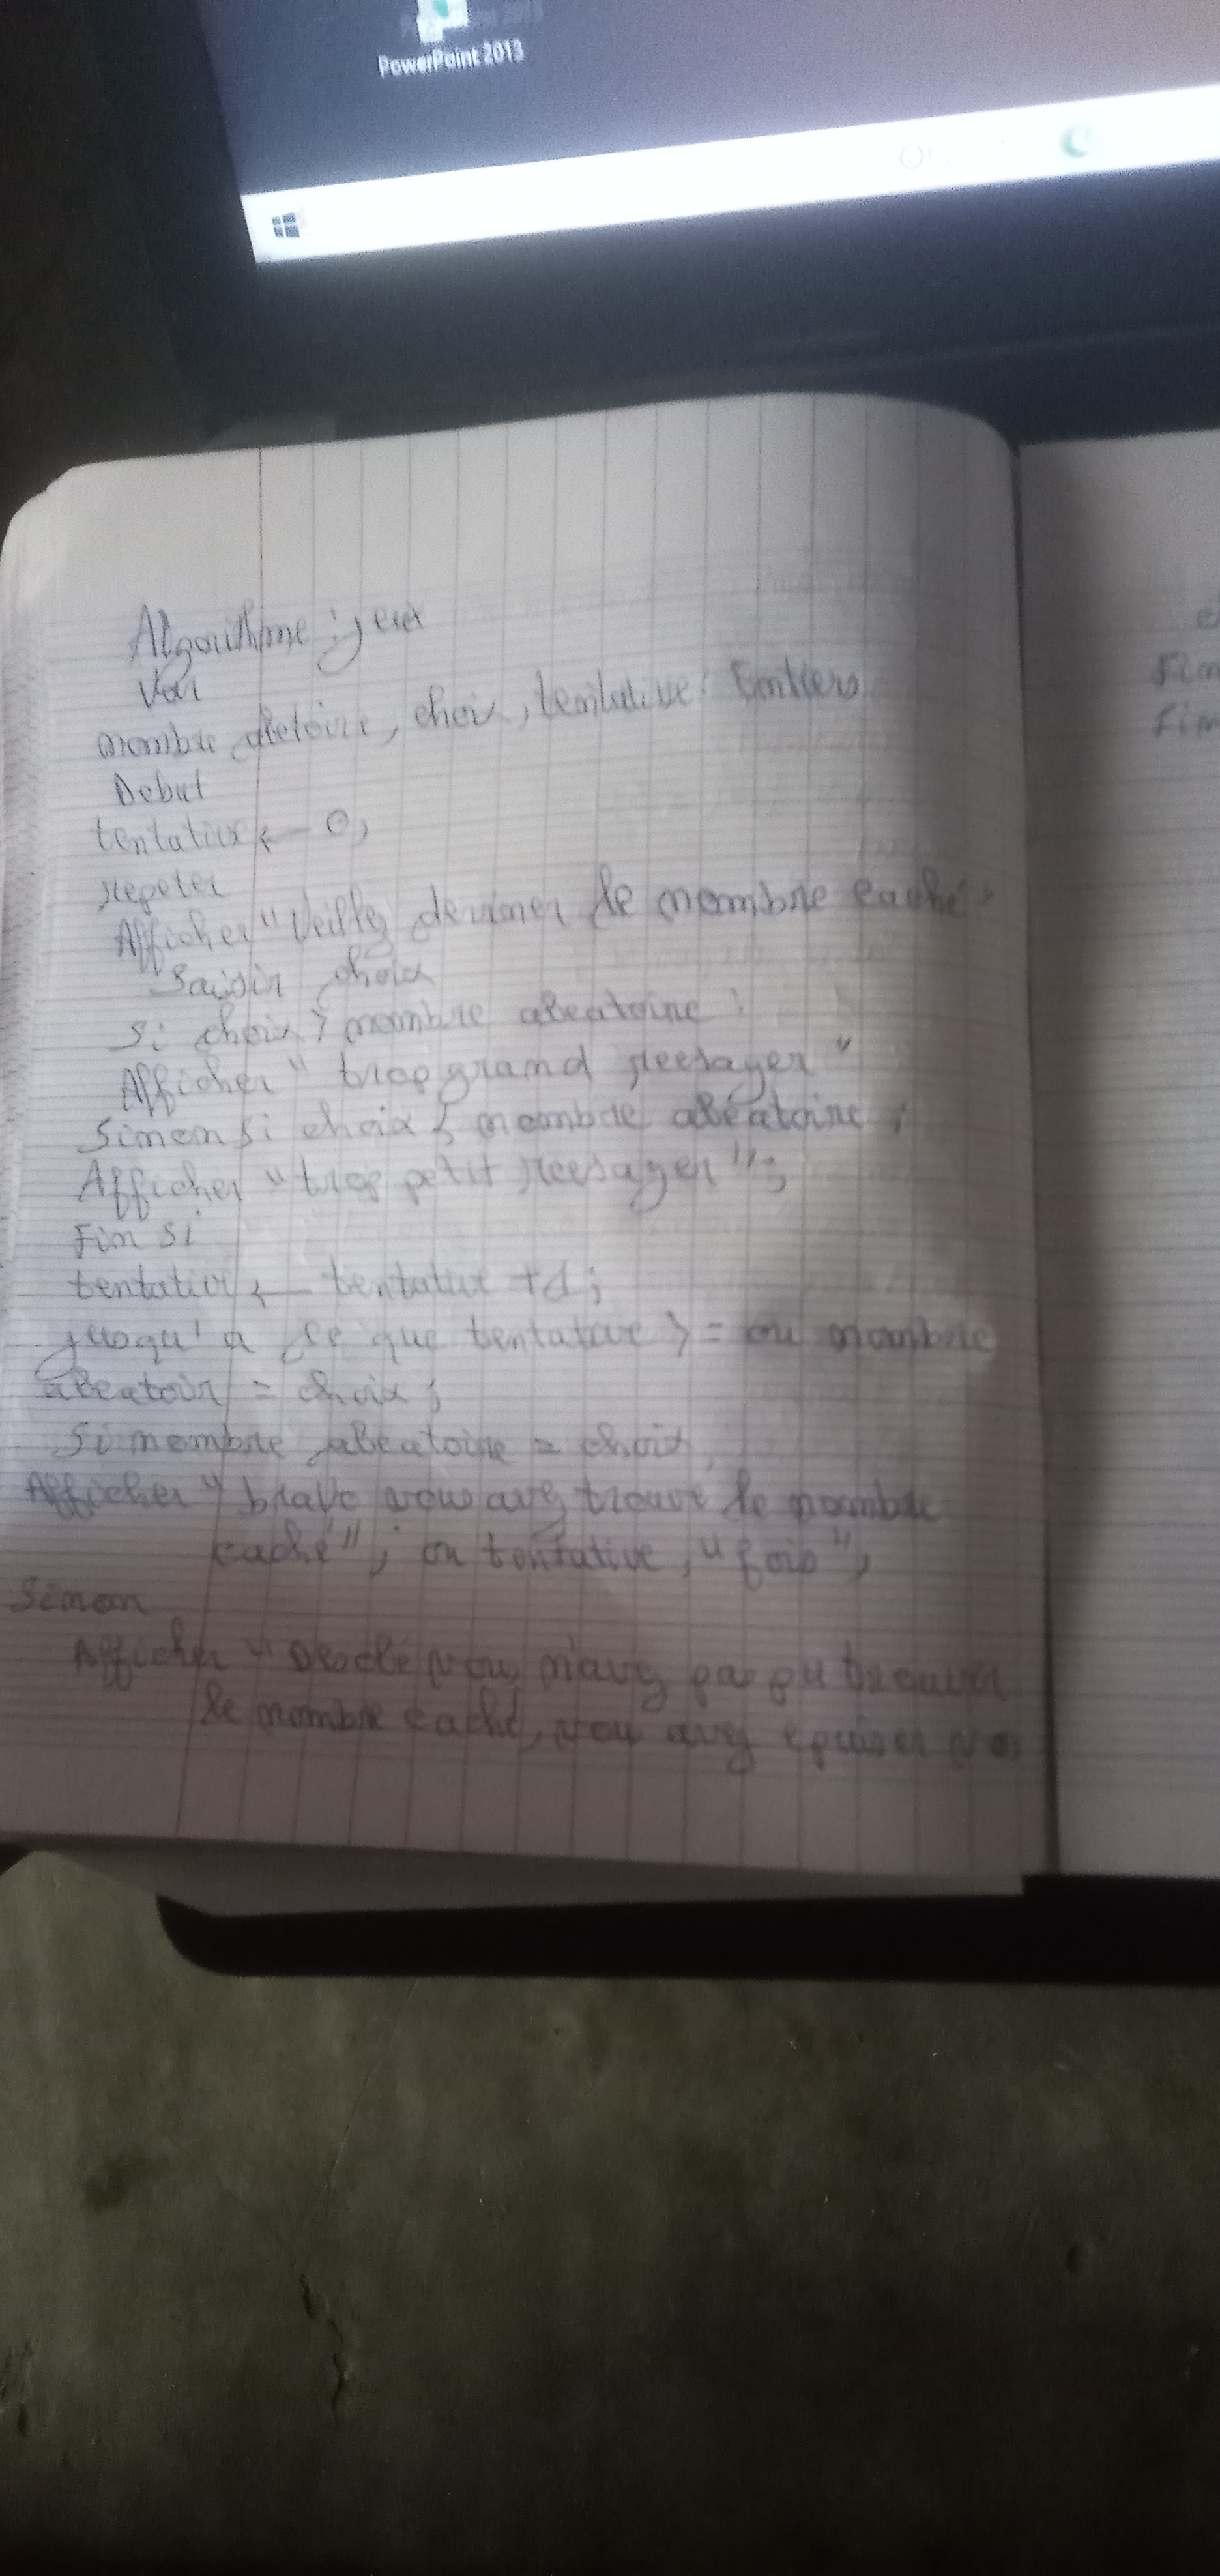 PowerPoint 2013
Algorithme : jeux
Var
nombre aletoire, choix, tentative : Entiers
Debut
tentative ← 0;
repeter
Afficher "Veillez deviner le nombre caché"
Saisir choix
Si choix > nombre aleatoire :
Afficher "trop grand reesayer"
Sinon si choix < nombre aleatoire ;
Afficher "trop petit reesayer";
Fin si
tentative ← tentative + 1;
jusqu'a ce que tentative >= ou nombre
aleatoir = choix ;
Si nombre aleatoire = choix
Afficher "bravo vous avez trouvé le nombre
caché"; en tentative, "fois",
Sinon
Afficher "Desolé vous n'avez pas pu trouver
le nombre caché, vous avez epuiser vos
Fin
Fin